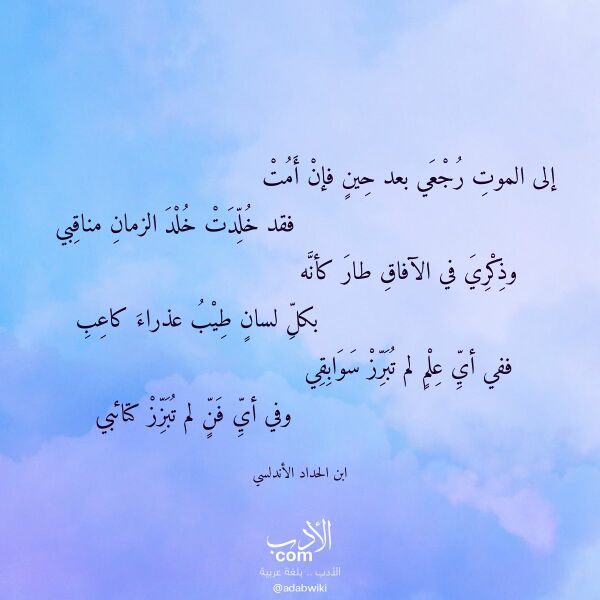 إلى الموتِ رُجْعَي بعد حِينٍ فإنْ أَمُتْ
فقد خُلِّدَتْ خُلْدَ الزمانِ مناقِبي
وذِكْرِيَ في الآفاقِ طارَ كأنَّه
بكلِّ لسانٍ طِيْبُ عذراءَ كاعِبِ
ففي أيِّ عِلْمٍ لم تُبَرِّزْ سَوَابِقِي
وفي أيِّ فَنٍّ لم تُبَرِّزْ كتائبي
ابن الحداد الأندلسي
الأدب
com
الأدب .. بلغة عربية
@adabwiki